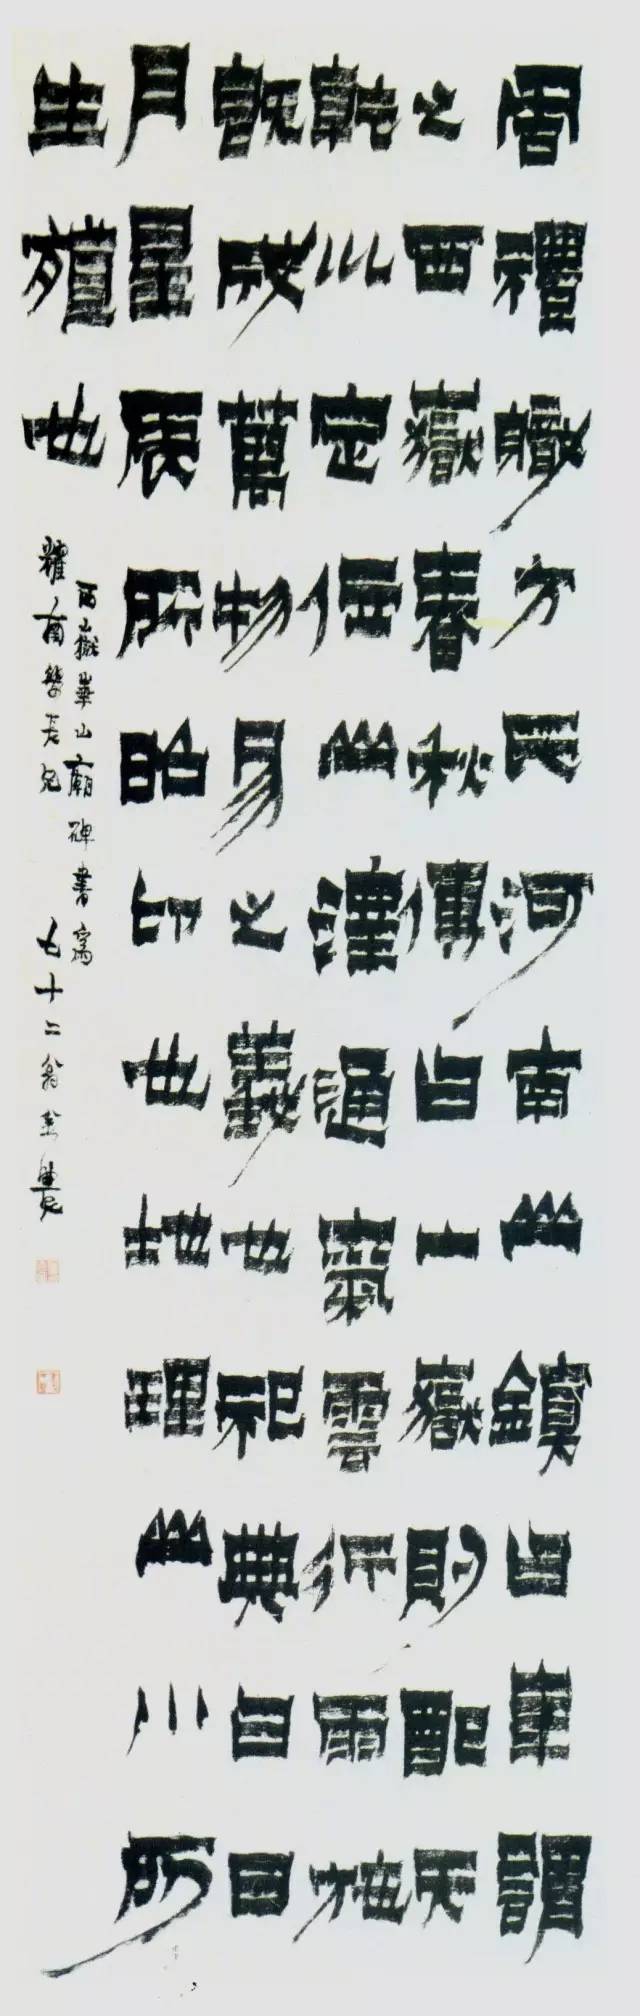 周禮職方氏河南山鎮曰華謂
之西嶽春秋傳曰山嶽則配天
乾川定位山澤通氣雲行雨施
既成萬物易之義也祀典曰日
月星辰所昭卬也地理山川所
生殖也
西嶽華山廟碑書寄
耀南學長兄 七十二翁金農